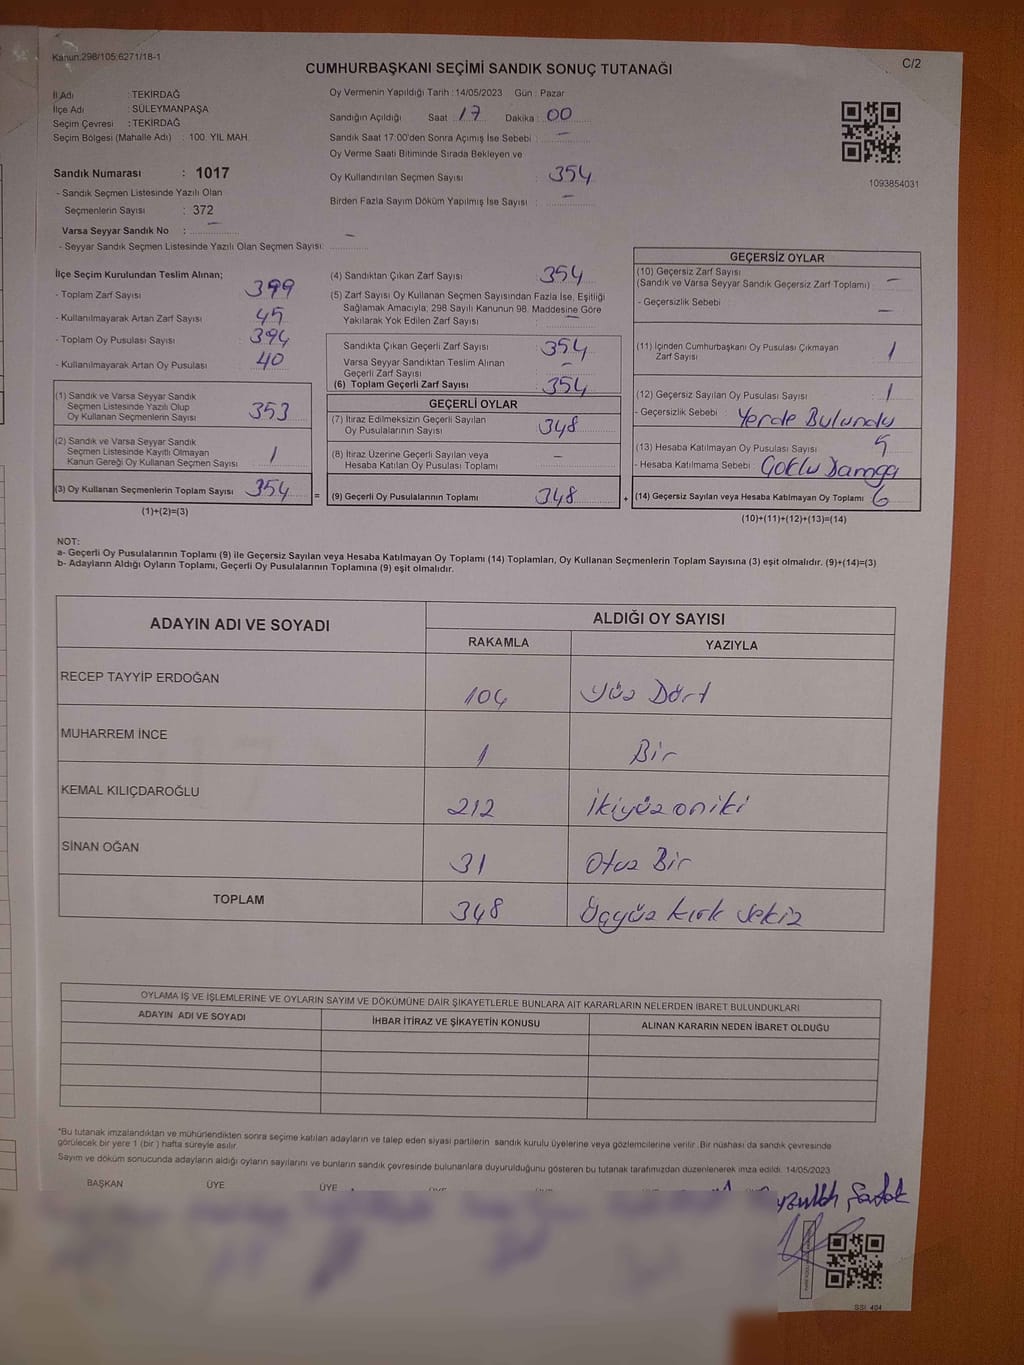 Kanun:298/105;6271/18-1
C/2
CUMHURBAŞKANI SEÇİMİ SANDIK SONUÇ TUTANAĞI
İl Adı : TEKİRDAĞ
İlçe Adı : SÜLEYMANPAŞA
Seçim Çevresi : TEKİRDAĞ
Seçim Bölgesi (Mahalle Adı) : 100. YIL MAH.
Sandık Numarası : 1017
- Sandık Seçmen Listesinde Yazılı Olan
Seçmenlerin Sayısı : 372
Varsa Seyyar Sandık No : –
- Seyyar Sandık Seçmen Listesinde Yazılı Olan Seçmen Sayısı: –
Oy Vermenin Yapıldığı Tarih : 14/05/2023 Gün : Pazar
Sandığın Açıldığı Saat : 17 Dakika : 00
Sandık Saat 17:00'den Sonra Açımış İse Sebebi : –
Oy Verme Saati Bitiminde Sırada Bekleyen ve
Oy Kullandırılan Seçmen Sayısı : 354
Birden Fazla Sayım Döküm Yapılmış İse Sayısı : –
1093854031
İlçe Seçim Kurulundan Teslim Alınan;
- Toplam Zarf Sayısı : 399
- Kullanılmayarak Artan Zarf Sayısı : 45
- Toplam Oy Pusulası Sayısı : 394
- Kullanılmayarak Artan Oy Pusulası : 40
(1) Sandık ve Varsa Seyyar Sandık
Seçmen Listesinde Yazılı Olup
Oy Kullanan Seçmenlerin Sayısı : 353
(2) Sandık ve Varsa Seyyar Sandık
Seçmen Listesinde Kayıtlı Olmayan
Kanun Gereği Oy Kullanan Seçmen Sayısı : 1
(3) Oy Kullanan Seçmenlerin Toplam Sayısı : 354 =
(1)+(2)=(3)
(4) Sandıktan Çıkan Zarf Sayısı : 354
(5) Zarf Sayısı Oy Kullanan Seçmen Sayısından Fazla İse, Eşitliği
Sağlamak Amacıyla; 298 Sayılı Kanunun 98. Maddesine Göre
Yakılarak Yok Edilen Zarf Sayısı : –
Sandıkta Çıkan Geçerli Zarf Sayısı : 354
Varsa Seyyar Sandıktan Teslim Alınan
Geçerli Zarf Sayısı : –
(6) Toplam Geçerli Zarf Sayısı : 354
GEÇERLİ OYLAR
(7) İtiraz Edilmeksizin Geçerli Sayılan
Oy Pusulalarının Sayısı : 348
(8) İtiraz Üzerine Geçerli Sayılan veya
Hesaba Katılan Oy Pusulası Toplamı : –
(9) Geçerli Oy Pusulalarının Toplamı : 348 +
GEÇERSİZ OYLAR
(10) Geçersiz Zarf Sayısı
(Sandık ve Varsa Seyyar Sandık Geçersiz Zarf Toplamı) : –
- Geçersizlik Sebebi : –
(11) İçinden Cumhurbaşkanı Oy Pusulası Çıkmayan
Zarf Sayısı : 1
(12) Geçersiz Sayılan Oy Pusulası Sayısı : 1
- Geçersizlik Sebebi : Yerde Bulundu
(13) Hesaba Katılmayan Oy Pusulası Sayısı :
- Hesaba Katılmama Sebebi : Çoklu Damga
(14) Geçersiz Sayılan veya Hesaba Katılmayan Oy Toplamı : 6
(10)+(11)+(12)+(13)=(14)
NOT:
a- Geçerli Oy Pusulalarının Toplamı (9) ile Geçersiz Sayılan veya Hesaba Katılmayan Oy Toplamı (14) Toplamları, Oy Kullanan Seçmenlerin Toplam Sayısına (3) eşit olmalıdır. (9)+(14)=(3)
b- Adayların Aldığı Oyların Toplamı, Geçerli Oy Pusulalarının Toplamına (9) eşit olmalıdır.
ADAYIN ADI VE SOYADI
ALDIĞI OY SAYISI
RAKAMLA YAZIYLA
RECEP TAYYİP ERDOĞAN 104 Yüz Dört
MUHARREM İNCE 1 Bir
KEMAL KILIÇDAROĞLU 212 İkiyüz oniki
SİNAN OĞAN 31 Otuz Bir
TOPLAM 348 Üçyüz kırk sekiz
OYLAMA İŞ VE İŞLEMLERİNE VE OYLARIN SAYIM VE DÖKÜMÜNE DAİR ŞİKAYETLERLE BUNLARA AİT KARARLARIN NELERDEN İBARET BULUNDUKLARI
ADAYIN ADI VE SOYADI İHBAR İTİRAZ VE ŞİKAYETİN KONUSU ALINAN KARARIN NEDEN İBARET OLDUĞU
*Bu tutanak imzalandıktan ve mühürlendikten sonra seçime katılan adayların ve talep eden siyasi partilerin sandık kurulu üyelerine veya gözlemcilerine verilir. Bir nüshası da sandık çevresinde
görülecek bir yere 1 (bir ) hafta süreyle asılır.
Sayım ve döküm sonucunda adayların aldığı oyların sayılarını ve bunların sandık çevresinde bulunanlara duyurulduğunu gösteren bu tutanak tarafımızdan düzenlenerek imza edildi. 14/05/2023
BAŞKAN ÜYE ÜYE
SSI: 404